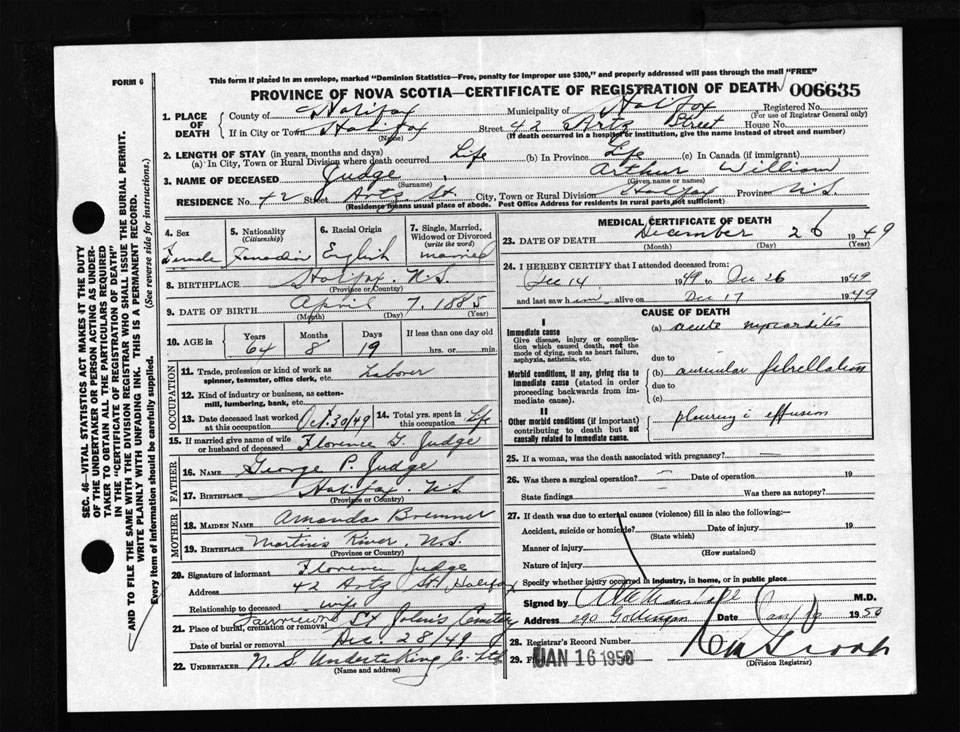 FORM 6
This form if placed in an envelope, marked "Dominion Statistics—Free, penalty for improper use $300," and properly addressed will pass through the mail "FREE"
PROVINCE OF NOVA SCOTIA—CERTIFICATE OF REGISTRATION OF DEATH 006635
SEC. 46—VITAL STATISTICS ACT MAKES IT THE DUTY
OF THE UNDERTAKER OR PERSON ACTING AS UNDER-
TAKER TO OBTAIN ALL THE PARTICULARS REQUIRED
IN THE "CERTIFICATE OF REGISTRATION OF DEATH"
AND TO FILE THE SAME WITH THE DIVISION REGISTRAR WHO SHALL ISSUE THE BURIAL PERMIT.
WRITE PLAINLY WITH UNFADING INK. THIS IS A PERMANENT RECORD.
Every item of information should be carefully supplied. (See reverse side for instructions.)
1. PLACE OF DEATH
County of Halifax Municipality of Halifax Registered No.
(For use of Registrar General only)
If in City or Town Halifax Street 42 Artz Street House No.
(Name) (If death occurred in a hospital or institution, give the name instead of street and number)
2. LENGTH OF STAY (in years, months and days)
(a) In City, Town or Rural Division where death occurred Life (b) In Province Life (c) In Canada (if immigrant)
3. NAME OF DECEASED Judge Arthur William
(Surname) (Given name or names)
RESIDENCE No. 42 Street Artz St City, Town or Rural Division Halifax Province N.S.
(Residence means usual place of abode. Post Office Address for residents in rural parts not sufficient)
4. Sex 5. Nationality (Citizenship) 6. Racial Origin 7. Single, Married, Widowed or Divorced (write the word)
Canadian English married
8. BIRTHPLACE Halifax N.S.
(Province or Country)
9. DATE OF BIRTH April 7. 1885
(Month) (Day) (Year)
10. AGE in Years Months Days If less than one day old
64 8 19 hrs. or min.
OCCUPATION
11. Trade, profession or kind of work as spinner, teamster, office clerk, etc. Laborer
12. Kind of industry or business, as cotton-mill, lumbering, bank, etc.
13. Date deceased last worked at this occupation Oct. 30/49 14. Total yrs. spent in this occupation Life
15. If married give name of wife or husband of deceased Florence G. Judge
FATHER
16. NAME George P. Judge
17. BIRTHPLACE Halifax N.S
(Province or Country)
MOTHER
18. MAIDEN NAME Amanda Bremner
19. BIRTHPLACE Martins River. N.S.
(Province or Country)
20. Signature of informant Florence Judge
Address 42 Artz St. Halifax
Relationship to deceased wife
21. Place of burial, cremation or removal Fairview St John's Cemetery
Date of burial or removal Dec. 28/49
22. UNDERTAKER N. S Undertaking Co. Ltd
(Name and address)
MEDICAL CERTIFICATE OF DEATH
23. DATE OF DEATH December 26 1949
(Month) (Day) (Year)
24. I HEREBY CERTIFY that I attended deceased from:
Dec 14 1949 to Dec 26 1949
and last saw him alive on Dec 17 1949
CAUSE OF DEATH
I
Immediate cause
Give disease, injury or complication which caused death, not the mode of dying, such as heart failure, asphyxia, asthenia, etc.
(a) acute myocarditis
due to
Morbid conditions, if any, giving rise to immediate cause (stated in order proceeding backwards from immediate cause).
(b) auricular fibrellation
due to
(c)
II
Other morbid conditions (if important) contributing to death but not causally related to immediate cause.
pleurisy effusion
25. If a woman, was the death associated with pregnancy? —
26. Was there a surgical operation? — Date of operation 19
State findings — Was there an autopsy?
27. If death was due to external causes (violence) fill in also the following:—
Accident, suicide or homicide? Date of injury 19
(State which)
Manner of injury
(How sustained)
Nature of injury
Specify whether injury occurred in industry, in home, or in public place
Signed by M.D.
Address 290 Gottingen Date Jan 1950
28. Registrar's Record Number
29. JAN 16 1950
(Division Registrar)